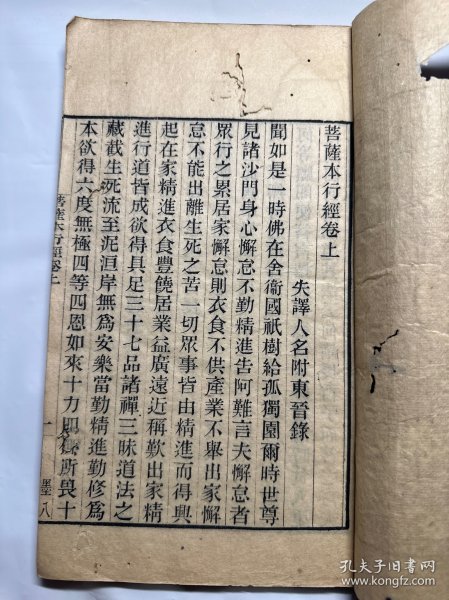 菩薩本行經卷上
失譯人名附東晉錄
聞如是一時佛在舍衞國祇樹給孤獨園爾時世尊
見諸沙門身心懈怠不勤精進告阿難言夫懈怠者
眾行之累居家懈怠則衣食不供產業不舉出家懈
怠不能出離生死之苦一切眾事皆由精進而得興
起在家精進衣食豐饒居業益廣遠近稱歎出家精
進行道皆成欲得具足三十七品諸禪三昧道法之
藏截生死流至泥洹岸無為安樂當勤精進勤修為
本欲得六度無極四等四恩如來十力四無所畏十
菩薩本行經卷上
一
墨八
孔夫子旧书网
book.kongfz.com